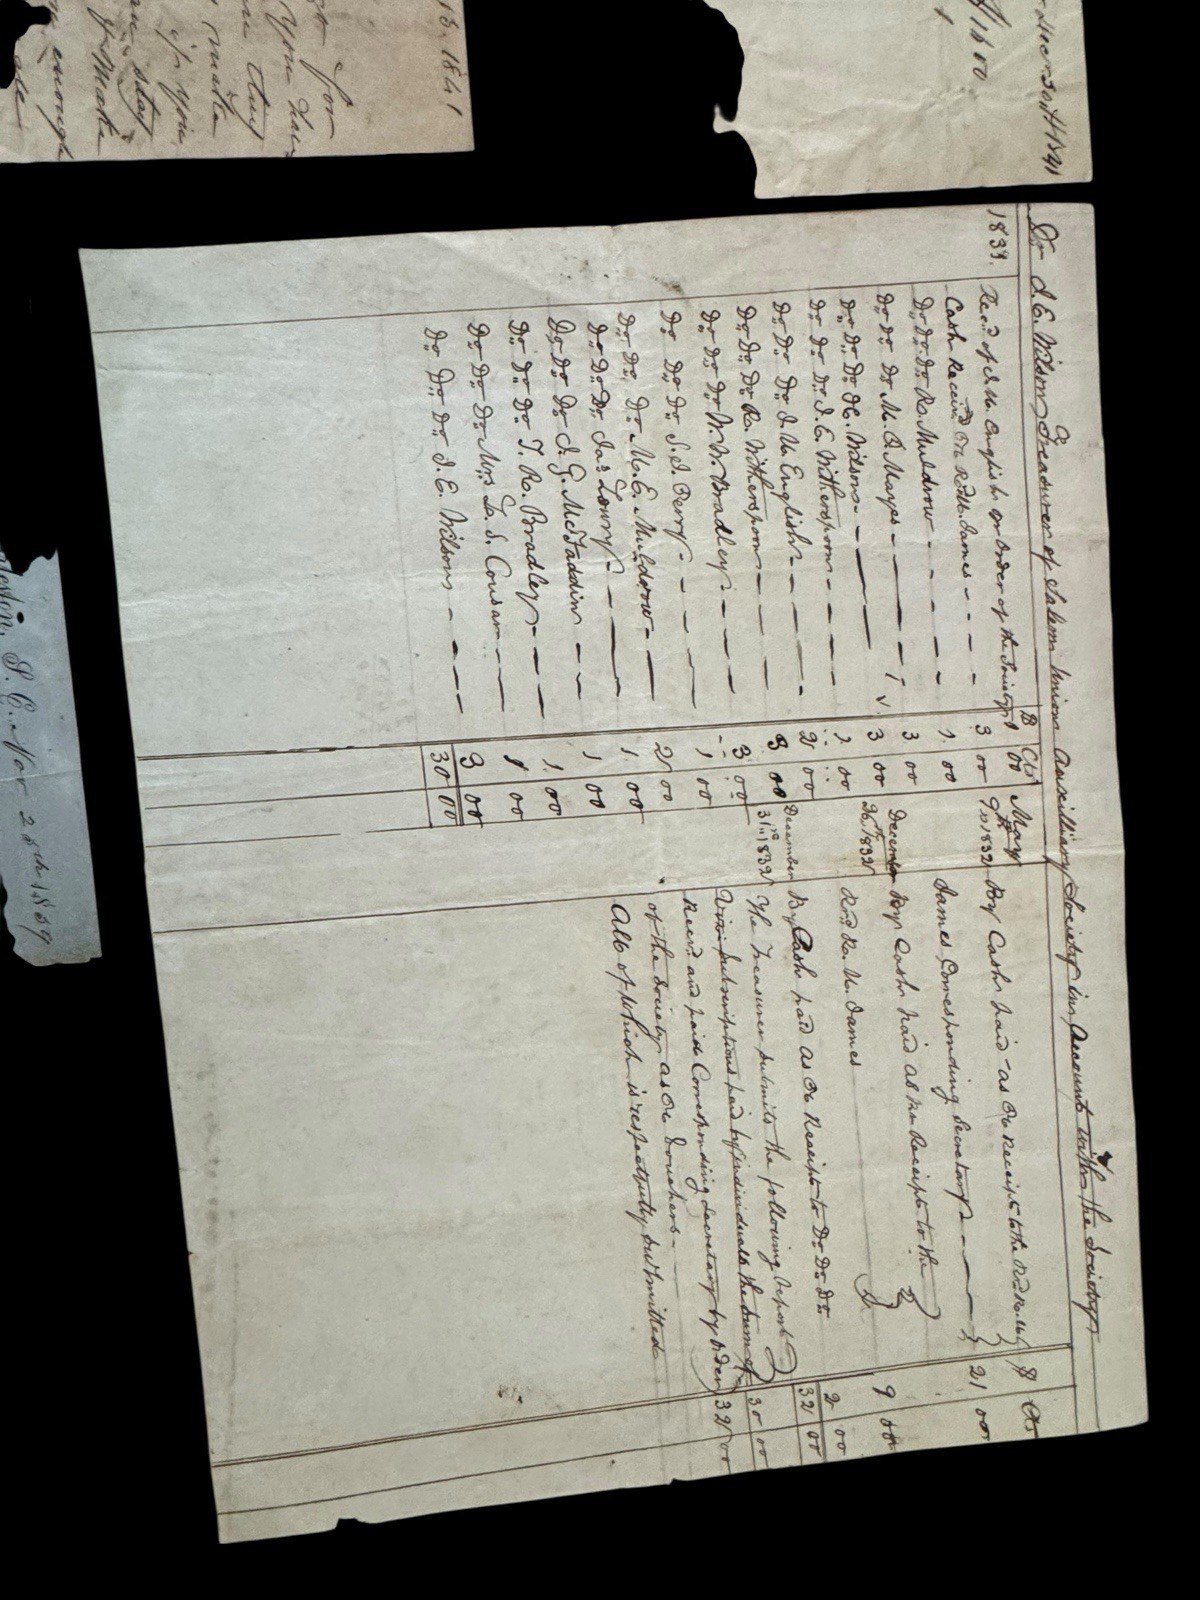 Dr. J. E. Wilson, Treasurer of Salem Union Auxilliary Society in Account with the Society
1833.
$ Cts
Rec.d of J. M. English on Order of the Society 1 00
Cash Received Pr Rd R. W. James - - - - 3 00
Do Do Do R. Muldrow - - - - 1. 00
Do Do Do M. A. Mayes - - - - 3 00
Do Do Do H. Wilson - - - 3 00
Do Do Do J. E. Witherspoon - - - - 1. 00
Do Do Do J. M. English - - - - 2 00
Do Do Do R. Witherspoon - - - 8 00
Do Do Do W. W. Bradley - - - - 3 00
Do Do Do S. J. Perry - - - - 1 00
Do Do Do M. E. Muldrow - - 2 00
Do Do Do Jas Lowry - - - 1. 00
Do Do Do J. G. McFaddin - - - 1 00
Do Do Do T. R. Bradley - - - - 1. 00
Do Do Do Mrs L. S. Cousar - - - 1 00
Do Do Do J. E. Wilson - - - - 3 00
30 00
$ Cts
May 9th 1832 By Cash paid as Pr Receipt to the Rd R. W.
James Corresponding Secretary - - - - 21 00
December 26th 1832 By Cash paid as Pr Receipt to the
Rd R. W. James 9 00
December 31st 1832 By Cash paid as Pr Receipt to Do Do Do 2 00
32 00
The Treasurer submits the following Report
Viz: Subscriptions paid by individuals the sum of 30 00
Recd and paid Corresponding Secretary by Order 32 00
of the Society as Pr Vouchers -
All of Which is respectfully submitted
13. 1841
for
you have
they
make
if you
stay
make
enough
$1600
30th 1841
S. C. Nov 25th 1859